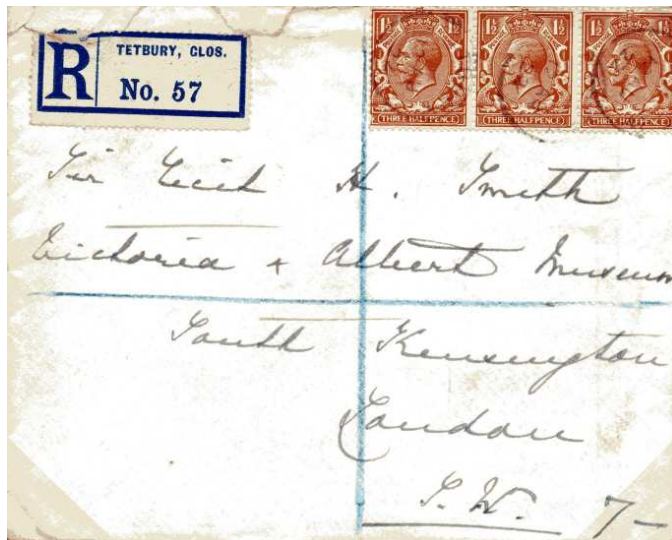 R
TETBURY, GLOS.
No. 57
1½ 1½ 1½ 1½ 1½ 1½
THREE HALFPENCE THREE HALFPENCE THREE HALFPENCE
Sir Cecil H. Smith
Victoria + Albert Museum
South Kensington
London
S.W. 7-